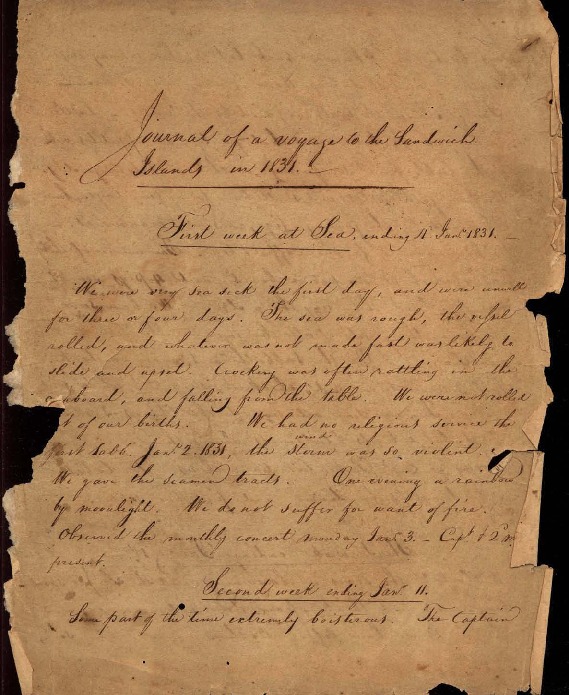 Journal of a voyage to the Sandwich
Islands in 1831.
First week at Sea, ending 4 Jany 1831.
We were very sea sick the first day, and were unwell
for three or four days. The sea was rough, the vessel
rolled, and whatever was not made fast was likely to
slide and upset. Crockery was often rattling in the
cuboard, and falling from the table. We were not rolled
t of our births. We had no religious service the
first Sab. Jany 2. 1831, the wind was so violent.
We gave the seamen tracts. One evening a rainbow
by moonlight. We do not suffer for want of fire.
Observed the monthly concert monday Jany 3. - Capt &
present.
Second week ending Jany 11.
Some part of the time extremely boisterous. The Captain